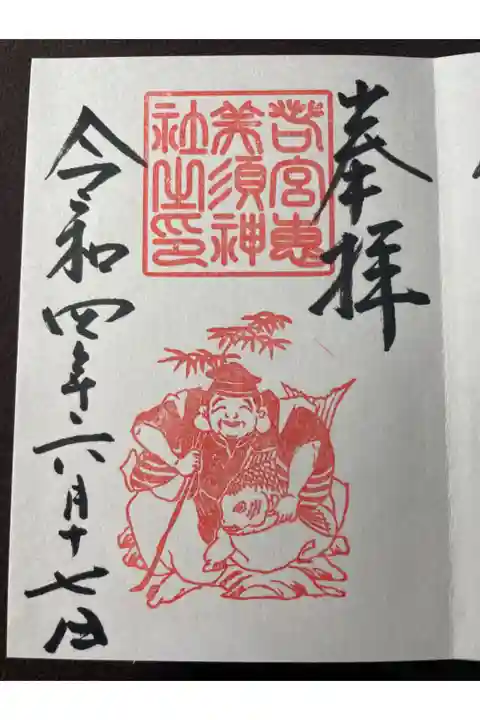 奉拝
若宮惠
美須神
社之印
令和四年六月十七日